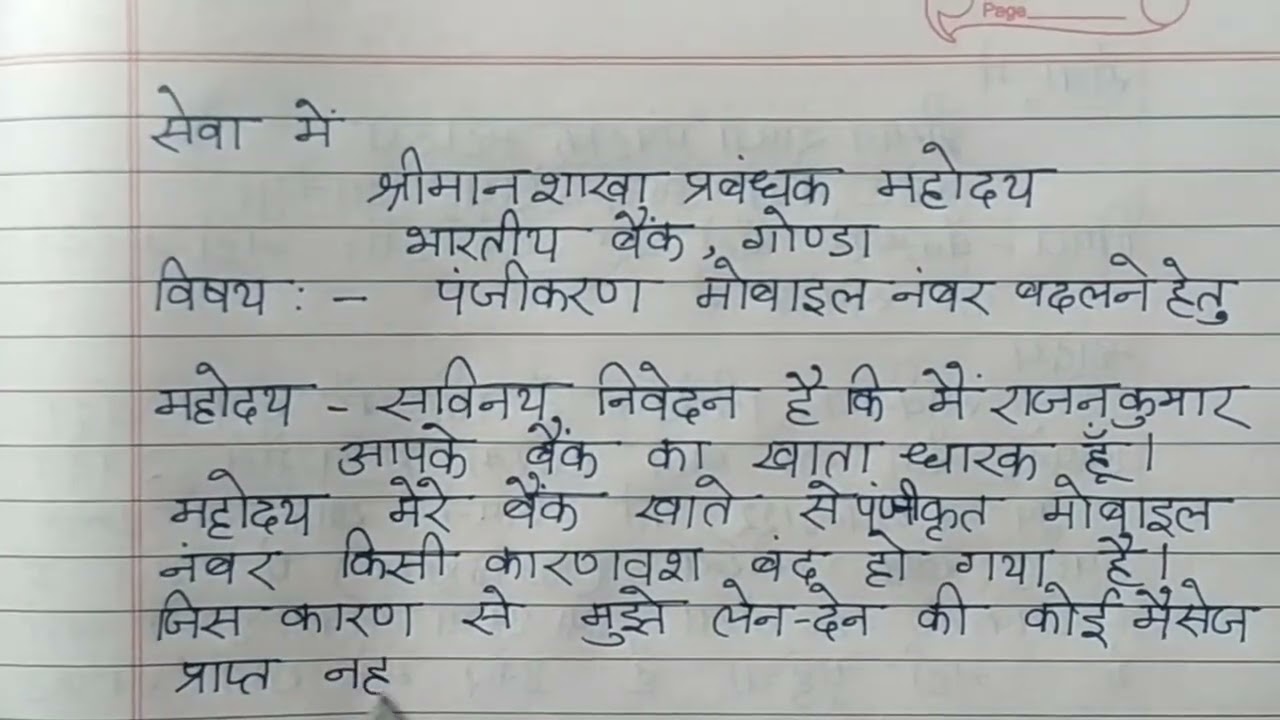 Page
सेवा में
श्रीमान शाखा प्रबंधक महोदय
भारतीय बैंक, गोण्डा
विषय : - पंजीकरण मोबाइल नंबर बदलने हेतु
महोदय - सविनय निवेदन है कि मैं राजन कुमार
आपके बैंक का खाता धारक हूँ।
महोदय मेरे बैंक खाते से पंजीकृत मोबाइल
नंबर किसी कारणवश बंद हो गया है।
जिस कारण से मुझे लेन-देन की कोई मैसेज
प्राप्त नह